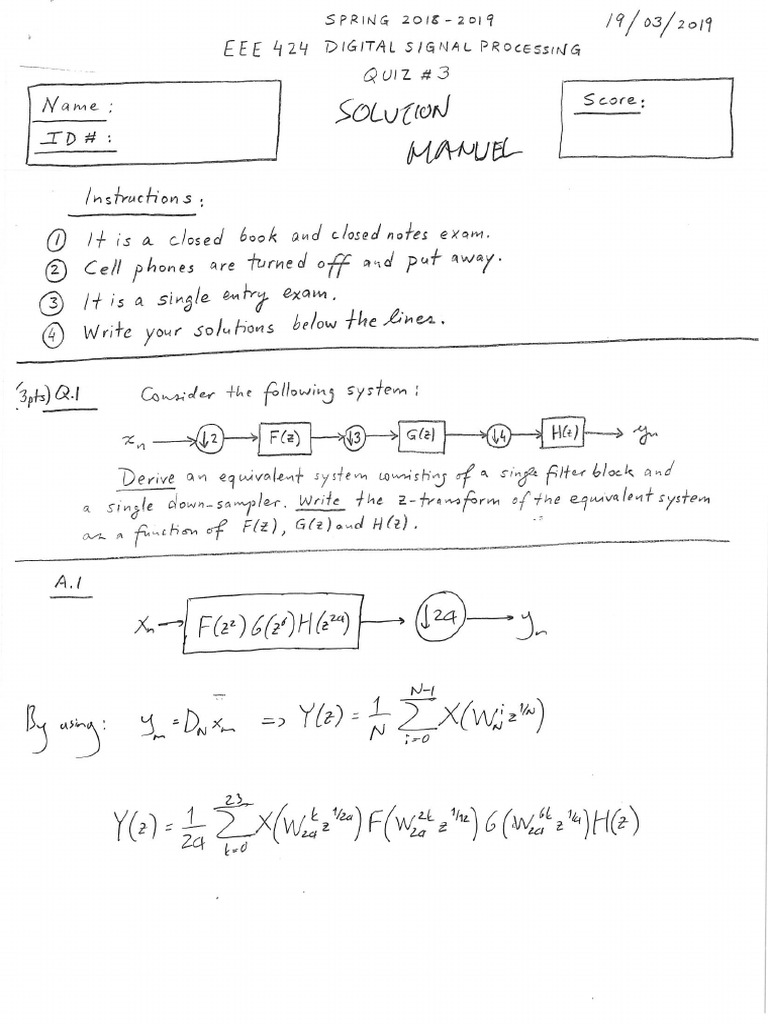 SPRING 2018-2019
19/03/2019
EEE 424 DIGITAL SIGNAL PROCESSING
QUIZ #3
Name:
ID#:
SOLUTION
MANUEL
Score:
Instructions:
① It is a closed book and closed notes exam.
② Cell phones are turned off and put away.
③ It is a single entry exam.
④ Write your solutions below the lines.
(3pts) Q.1 Consider the following system:
xₙ → ↓2 → F(z) → ↓3 → G(z) → ↓4 → H(z) → yₙ
Derive an equivalent system consisting of a single filter block and
a single down-sampler. Write the z-transform of the equivalent system
as a function of F(z), G(z) and H(z).
A.1
xₙ → F(z²)G(z⁶)H(z²⁴) → ↓24 → yₙ
By using: yₙ = D_N xₙ => Y(z) = 1/N ∑_{i=0}^{N-1} X(W_N^i z^{1/N})
Y(z) = 1/24 ∑_{k=0}^{23} X(W_24^k z^{1/24}) F(W_24^{2k} z^{1/12}) G(W_24^{6k} z^{1/4}) H(z)